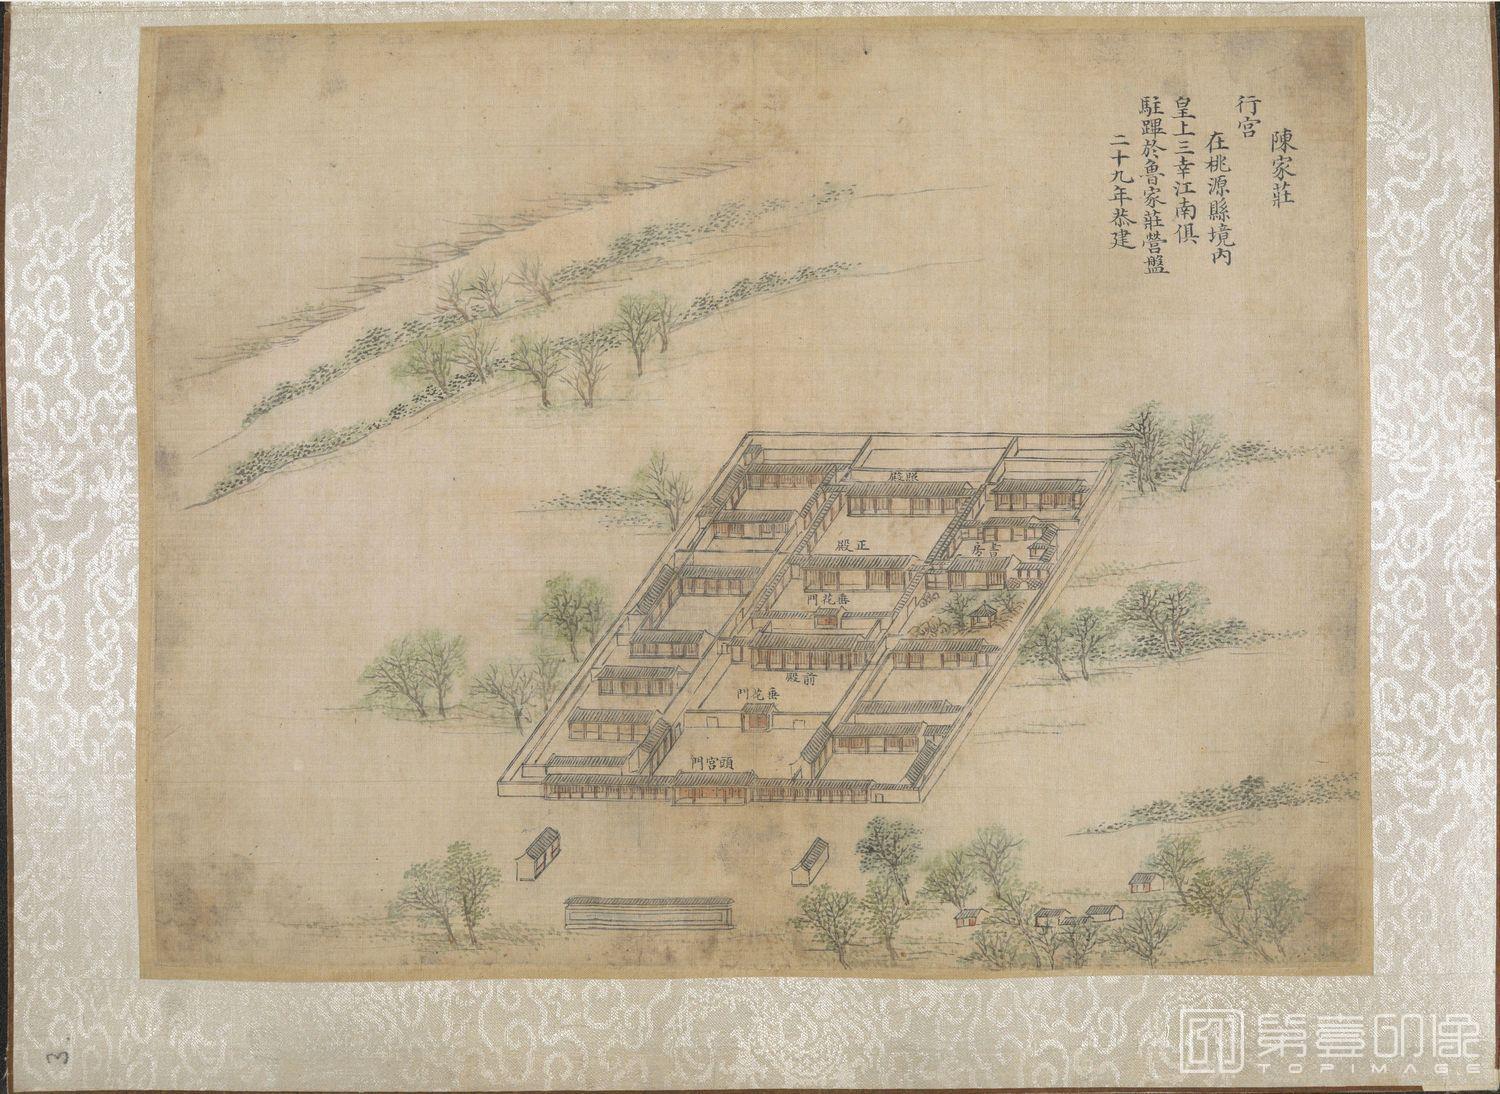 陳家莊
行宮
在桃源縣境內
皇上三幸江南俱
駐蹕於魯家莊營盤
二十九年恭建
照殿
正殿
書房
垂花門
前殿
垂花門
頭宮門
3.
第壹印像
TOPIMAGE